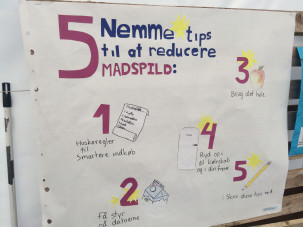 5 Nemme tips
til at reducere
MADSPILD:
1
Huskeregler
til
Smartere indkøb
2.
Få styr
på datoerne
3
Brug det hele
4
Ryd op i
dit køleskab
og i din fryser
5
Skriv dine